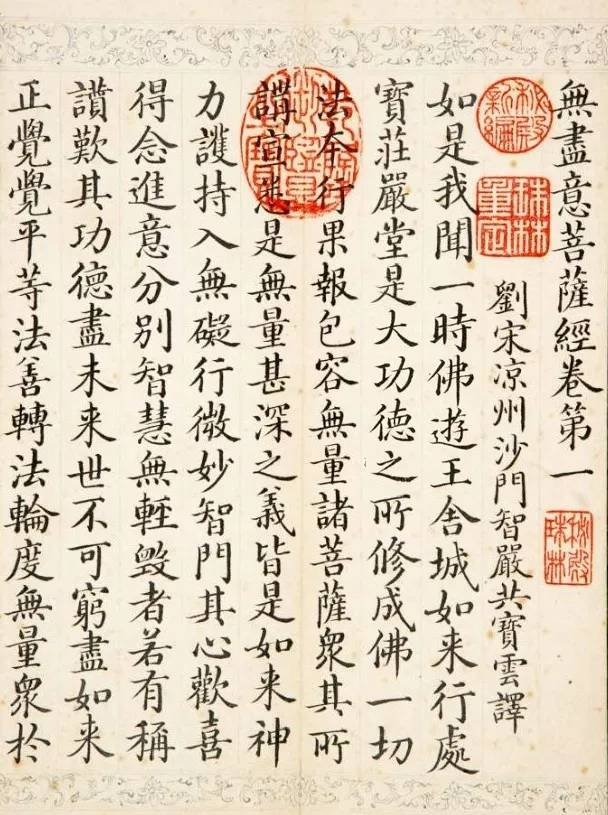 無盡意菩薩經卷第一
秘殿珠林
秘殿新編
珠林重定
劉宋凉州沙門智嚴共寶雲譯
如是我聞一時佛遊王舍城如来行處
寶莊嚴堂是大功德之所修成佛一切
法夲行果報包容無量諸菩薩衆其所
講宣悉是無量甚深之義皆是如来神
力護持入無礙行微妙智門其心歡喜
得念進意分别智慧無輕毀者若有稱
讚歎其功德盡未来世不可窮盡如来
正覺覺平等法善轉法輪度無量衆於